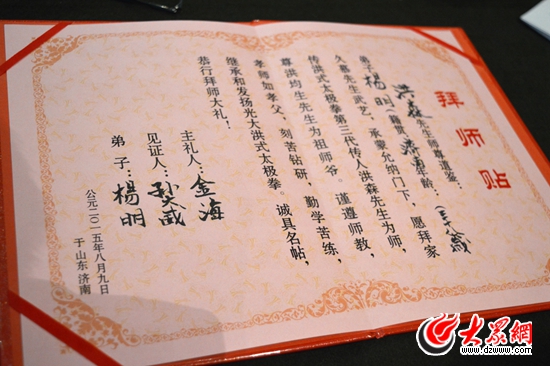 拜师贴
洪森先生师尊道鉴：
弟子杨明，籍贯济南年龄：(三十八歲)
久慕先生武艺，承蒙允纳门下，愿拜家
传洪式太极拳第三代传人洪森先生为师，
尊洪均生先生为祖师爷。谨遵师教，
孝师如孝父，刻苦钻研，勤学苦练，
继承和发扬光大洪式太极拳。诚具名帖，
恭行拜师大礼！
主礼人：金海
见证人：孙大威
弟子：楊明
公元二〇一五年八月九日
于山东济南
大众网
www.dzwww.com